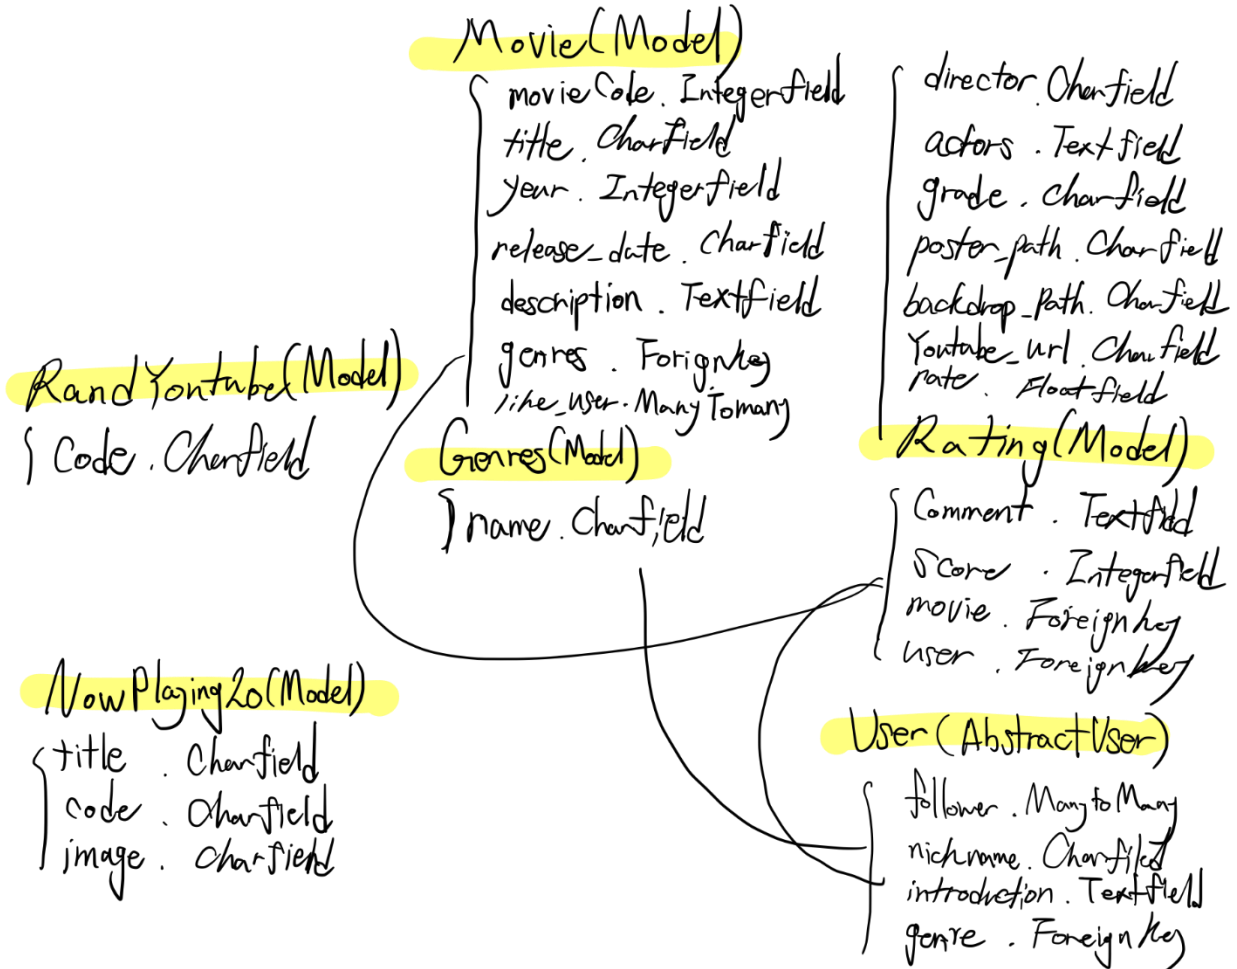 Movie(Model)
movieCode. Integerfield
title. Charfield
year. Integerfield
release_date. Charfield
description. Textfield
genres. Forignkey
like_user. ManyTomany
director. Charfield
actors. Textfield
grade. Charfield
poster_path. Charfield
backdrop_Path. Charfield
Youtube_url. Charfield
rate. Floatfield
RandYoutube(Model)
Code. Charfield
Genres(Model)
name. Charfield
Rating(Model)
Comment. Textfield
Score. Integerfield
movie. Foreignkey
user. Foreignkey
NowPlaying20(Model)
title. Charfield
code. Charfield
image. Charfield
User(AbstractUser)
follower. ManytoMany
nickname. Charfiled
introduction. Textfield
genre. Foreignkey